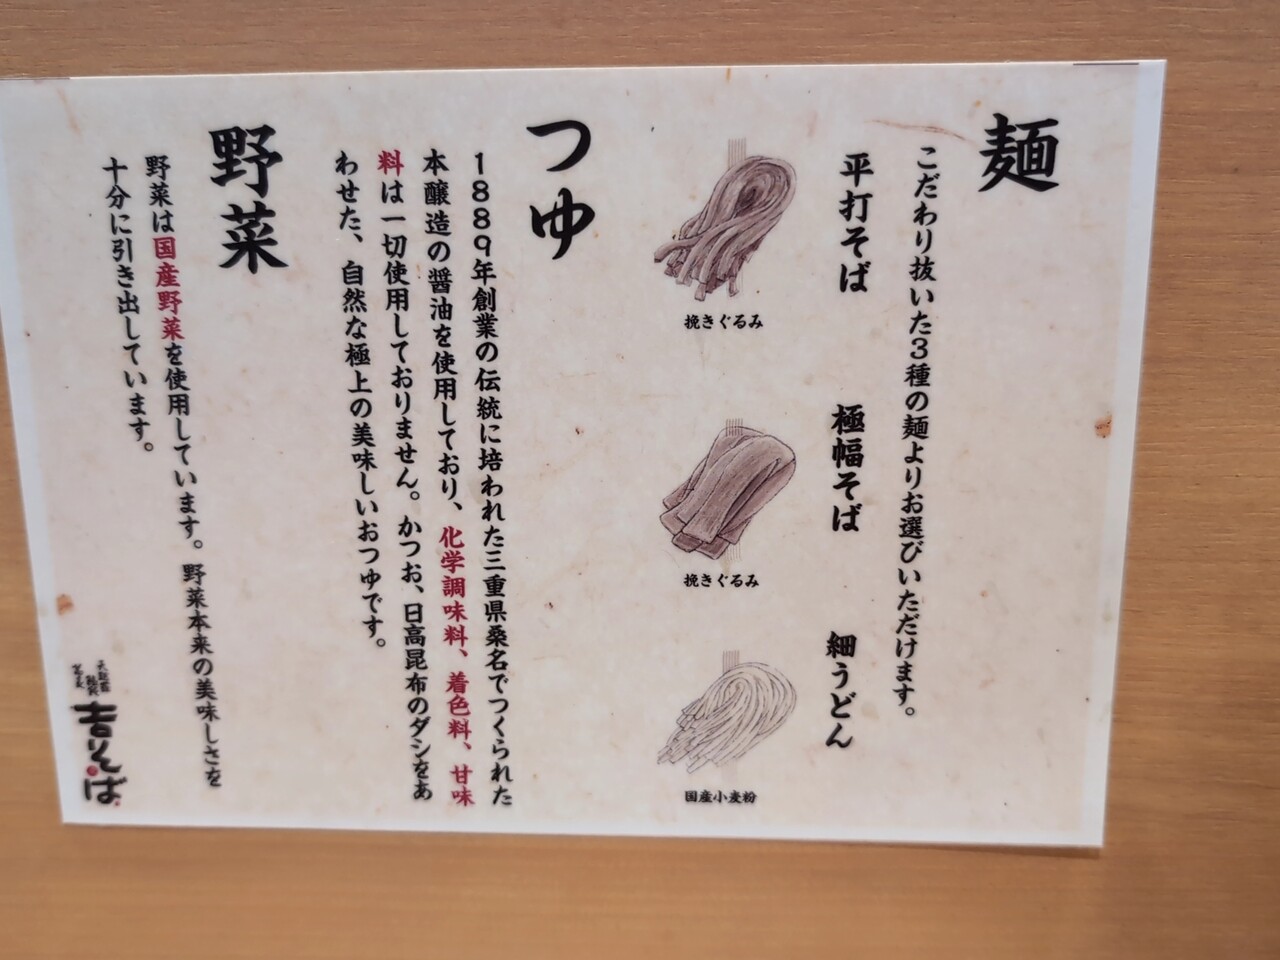 麺
こだわり抜いた3種の麺よりお選びいただけます。
平打そば
挽きぐるみ
極幅そば
挽きぐるみ
細うどん
国産小麦粉
つゆ
1889年創業の伝統に培われた三重県桑名でつくられた
本醸造の醤油を使用しており、化学調味料、着色料、甘味
料は一切使用しておりません。かつお、日高昆布のダシをあ
わせた、自然な極上の美味しいおつゆです。
野菜
野菜は国産野菜を使用しています。野菜本来の美味しさを
十分に引き出しています。
吉そば